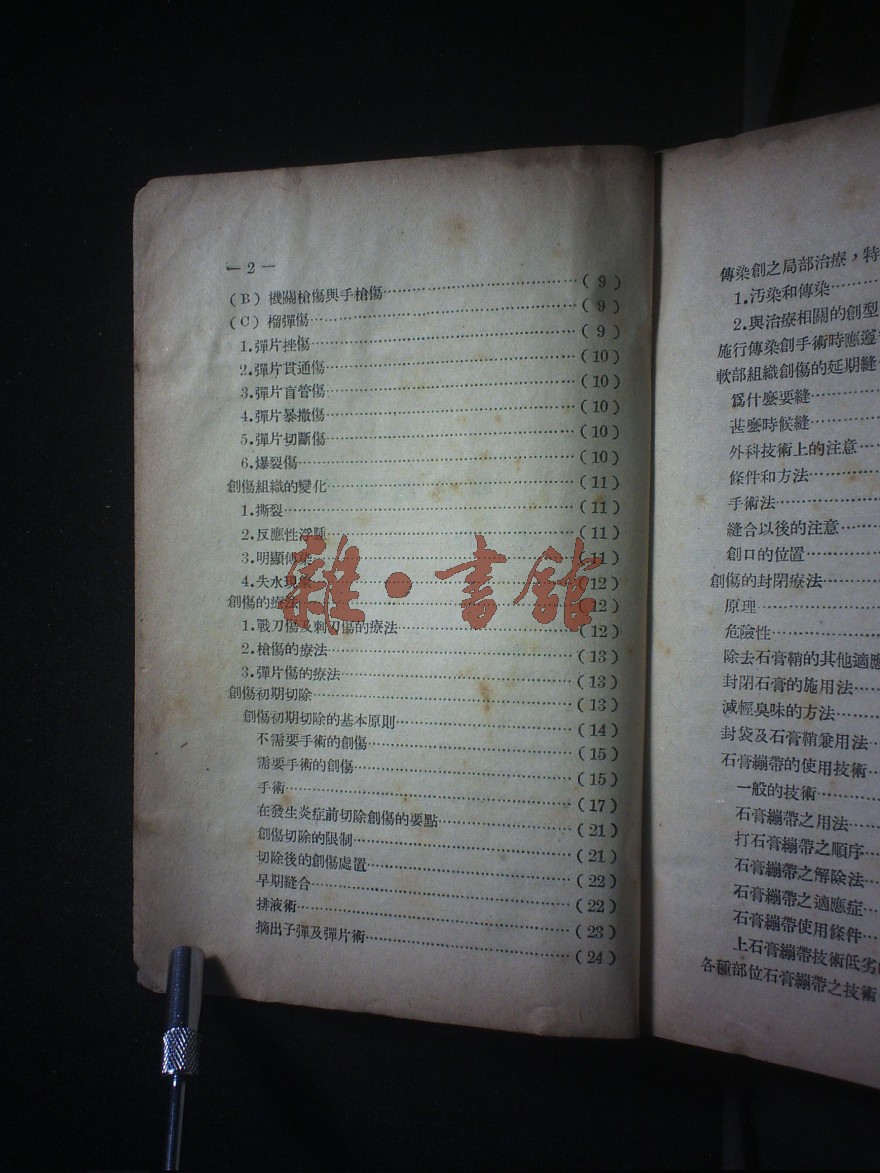 — 2 —
(B) 機關槍傷與手槍傷……(9)
(C) 榴彈傷……(9)
1.彈片挫傷……(9)
2.彈片貫通傷……(10)
3.彈片盲管傷……(10)
4.彈片暴撒傷……(10)
5.彈片切斷傷……(10)
6.爆裂傷……(10)
創傷組織的變化……(11)
1.撕裂……(11)
2.反應性浮腫……(11)
3.明顯傳染……(11)
4.失水現象……(12)
創傷的療法……(12)
1.戰刀傷及刺刀傷的療法……(12)
2.槍傷的療法……(13)
3.彈片傷的療法……(13)
創傷初期切除……(13)
創傷初期切除的基本原則……(14)
不需要手術的創傷……(15)
需要手術的創傷……(15)
手術……(17)
在發生炎症前切除創傷的要點……(21)
創傷切除的限制……(21)
切除後的創傷處置……(22)
早期縫合……(22)
排液術……(23)
摘出子彈及彈片術……(24)
雜·書館
傳染創之局部治療，特
1.汚染和傳染……
2.與治療相關的創型
施行傳染創手術時應遵
軟部組織創傷的延期縫
爲什麼要縫……
甚麼時候縫……
外科技術上的注意……
條件和方法……
手術法……
縫合以後的注意……
創口的位置……
創傷的封閉療法……
原理……
危險性……
除去石膏鞘的其他適應
封閉石膏的施用法……
減輕臭味的方法……
封袋及石膏鞘兼用法……
石膏繃帶的使用技術……
一般的技術……
石膏繃帶之用法……
打石膏繃帶之順序……
石膏繃帶之解除法……
石膏繃帶之適應症……
石膏繃帶使用條件……
上石膏繃帶技術低劣的
各種部位石膏繃帶之技術